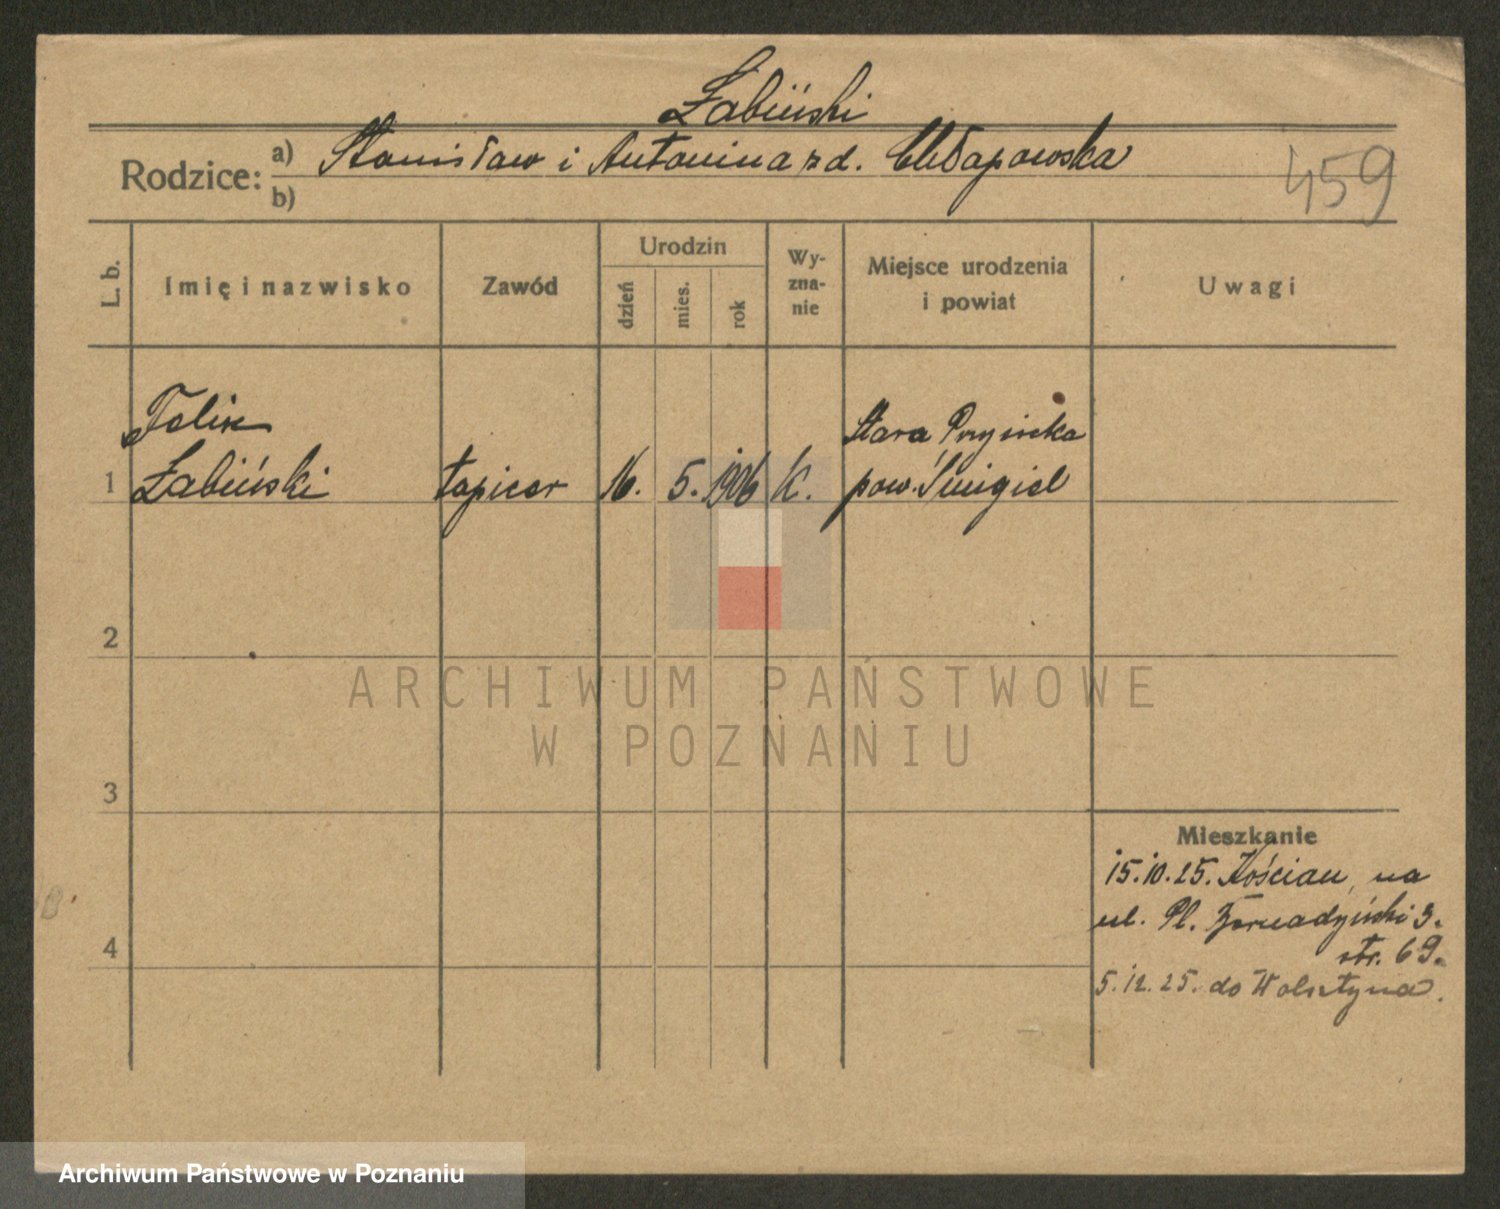 Łabiński
Rodzice: a) Stanisław i Antonina z d. Chłapowska
b)
459
L. b.
Imię i nazwisko
Zawód
Urodzin
dzień
mies.
rok
Wy-
zna-
nie
Miejsce urodzenia
i powiat
Uwagi
Felix
Stara Przysieka
1 Łabiński tapicer 16. 5. 1906 K. pow. Śmigiel
2
ARCHIWUM PAŃSTWOWE
W POZNANIU
3
Mieszkanie
15.10.25. Kościan, na
ul. Pl. 3.
4
str. 69.
5.12.25. do Wolsztyna.
Archiwum Państwowe w Poznaniu